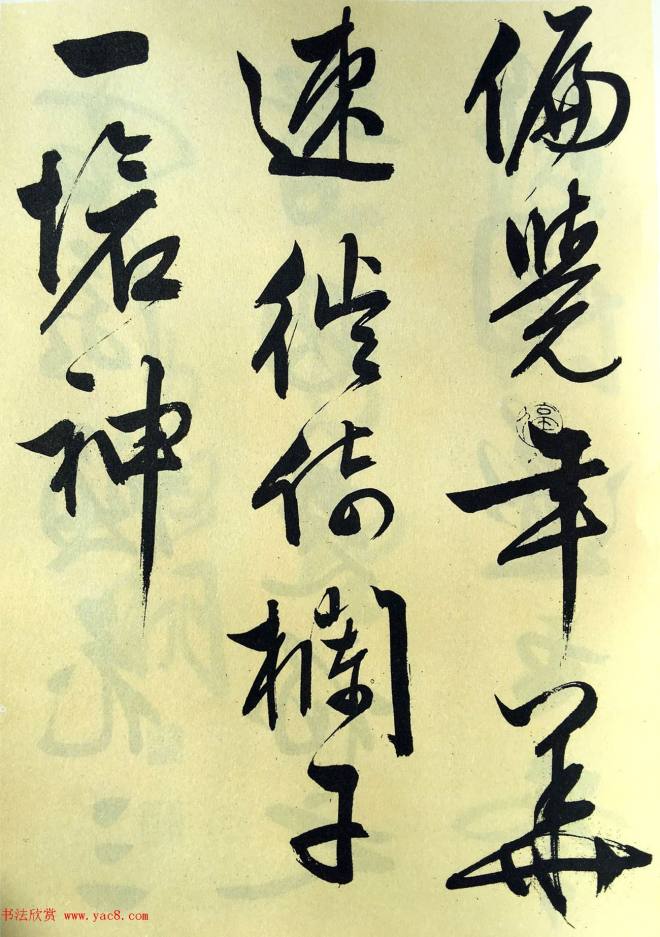 偏覺年華
速徙倚欄干
一愴神
书法欣赏 www.yac8.com